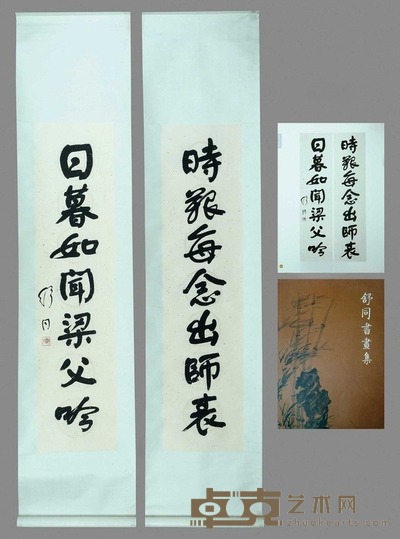 時艱每念出師表
日暮如聞梁父吟
舒同
時艱每念出師表
日暮如聞梁父吟
舒同
舒同書畫集
卓克艺术网
zhuokearts.com